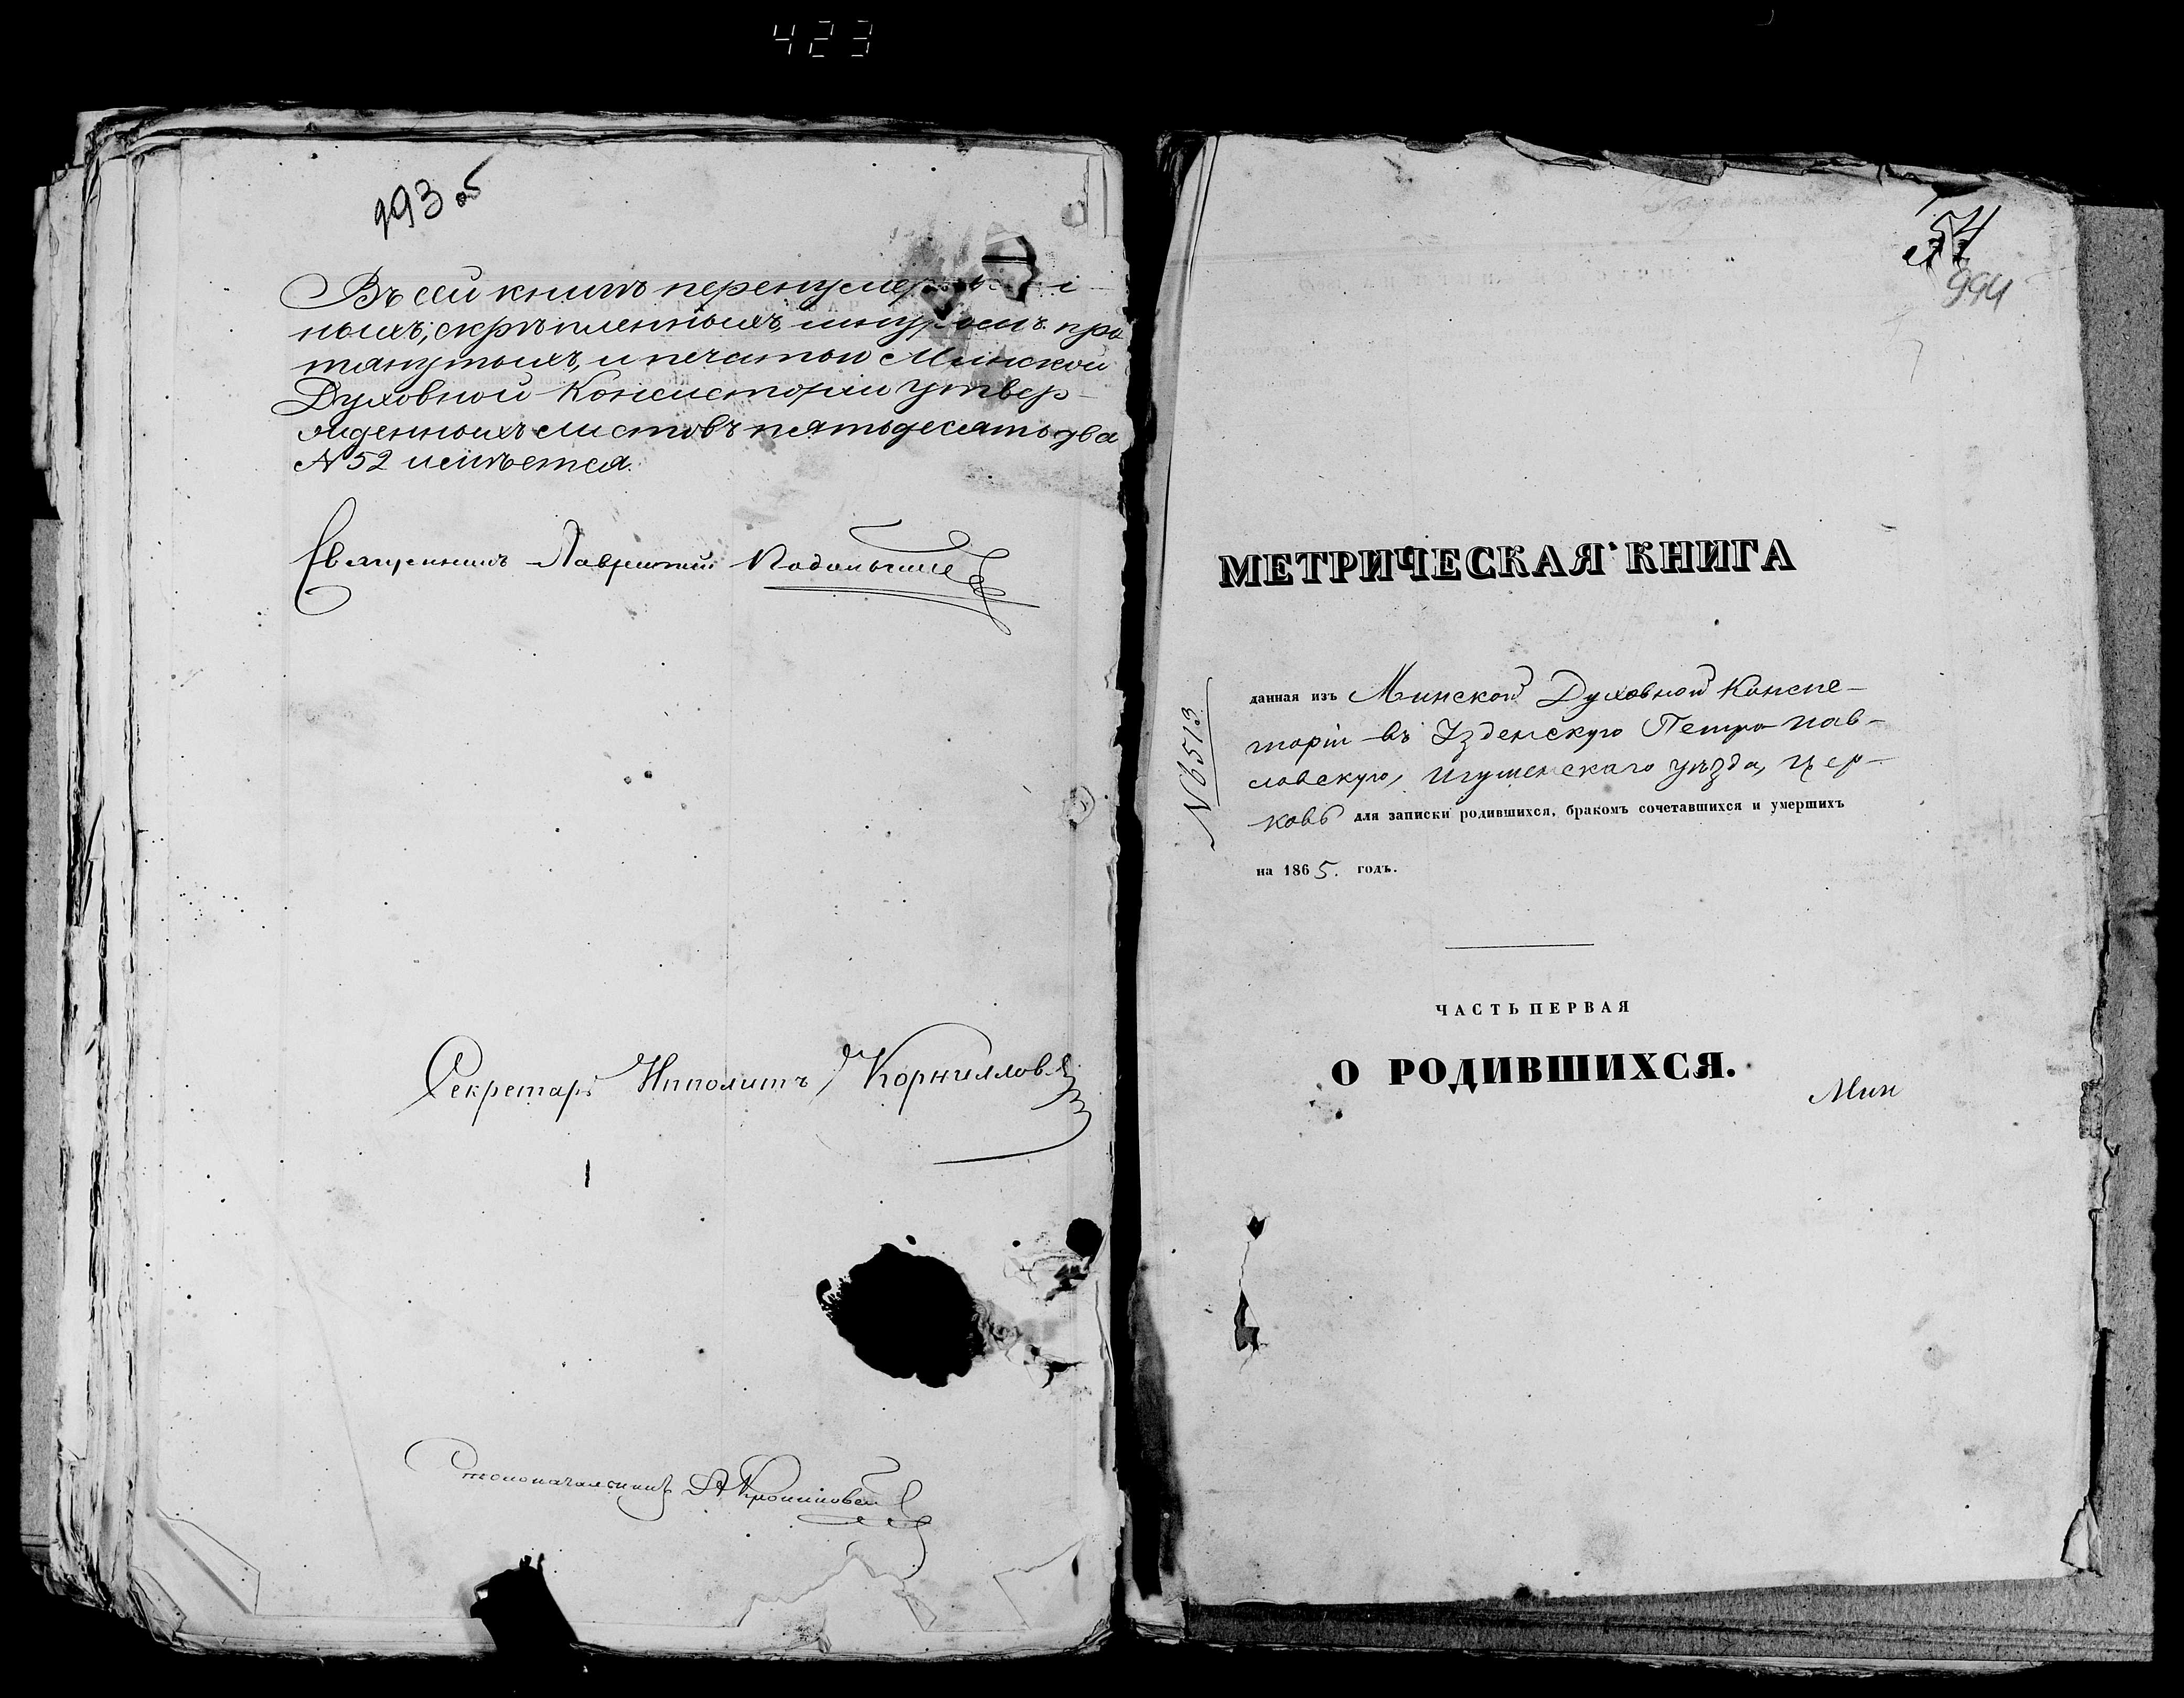 423
993 об
Въ сей книгѣ перенумер
ныхъ, скрѣпленныхъ, шнуромъ про
тянутыхъ, и печатью Минской
Духовной Консисторіи утвер-
жденныхъ листовъ пятьдесятъ два
№ 52 имѣется.
Священникъ Лаврентій
Секретарь Ипполитъ Корниллов
Столоначальникъ
54
994
МЕТРИЧЕСКАЯ КНИГА
№ 6513
данная изъ Минской Духовной Консис-
торіи въ Узденскую Петро-Пав-
ловскую, Игуменскаго уѣзда, цер-
ковь для записки родившихся, бракомъ сочетавшихся и умершихъ
на 1865. годъ.
ЧАСТЬ ПЕРВАЯ
О РОДИВШИХСЯ.
Мин